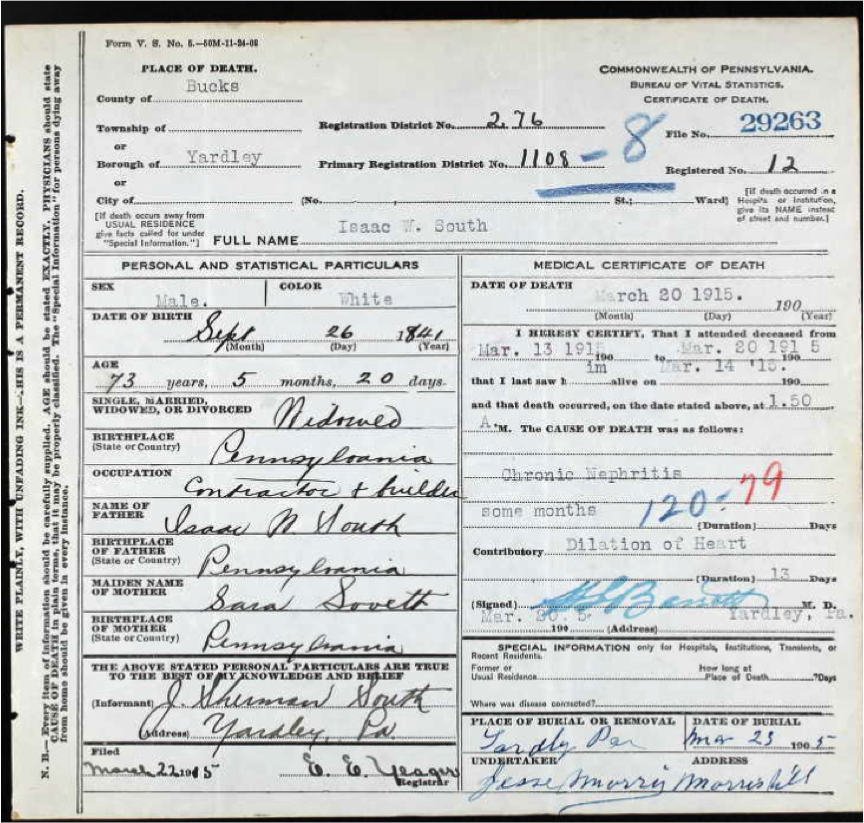 Form V. S. No. 5.—50M-11-24-08
PLACE OF DEATH.
County of Bucks
Township of
or
Borough of Yardley
or
City of
COMMONWEALTH OF PENNSYLVANIA.
BUREAU OF VITAL STATISTICS.
CERTIFICATE OF DEATH.
Registration District No. 276
File No. 29263
Primary Registration District No. 1108 - 8
Registered No. 12
(No. , St.; Ward)
[If death occurred in a Hospital or Institution, give its NAME instead of street and number.]
[If death occurs away from USUAL RESIDENCE give facts called for under "Special Information."]
FULL NAME Isaac W. South
PERSONAL AND STATISTICAL PARTICULARS
SEX Male.
COLOR White
DATE OF BIRTH
Sept 26 1841
(Month) (Day) (Year)
AGE
73 years, 5 months, 20 days.
SINGLE, MARRIED,
WIDOWED, OR DIVORCED Widowed
BIRTHPLACE
(State or Country) Pennsylvania
OCCUPATION
Contractor + builder
NAME OF
FATHER Isaac W South
BIRTHPLACE
OF FATHER
(State or Country) Pennsylvania
MAIDEN NAME
OF MOTHER Sara
BIRTHPLACE
OF MOTHER
(State or Country) Pennsylvania
THE ABOVE STATED PERSONAL PARTICULARS ARE TRUE
TO THE BEST OF MY KNOWLEDGE AND BELIEF
(Informant) J. Sherman South
(Address) Yardley, Pa
Filed
March 22 1915 E. E. Yeager
Registrar
MEDICAL CERTIFICATE OF DEATH
DATE OF DEATH
March 20 1915. 190
(Month) (Day) (Year)
I HEREBY CERTIFY, That I attended deceased from
Mar. 13 1915 190 to Mar. 20 191 5 190
that I last saw h im alive on Mar. 14 '15. 190
and that death occurred, on the date stated above, at 1.50
A. M. The CAUSE OF DEATH was as follows:
Chronic Nephritis
some months 120 - 79
(Duration) Days
Contributory Dilation of Heart
(Duration) 13 Days
(Signed) M. D.
Mar. 20. 5 190 (Address) Yardley, Pa.
SPECIAL INFORMATION only for Hospitals, Institutions, Transients, or Recent Residents.
Former or
Usual Residence
How long at
Place of Death ? Days
Where was disease contracted?
PLACE OF BURIAL OR REMOVAL
Yardly Pa
DATE OF BURIAL
Mar 23 1905
UNDERTAKER
Jesse Morris
ADDRESS
Morrisville
WRITE PLAINLY, WITH UNFADING INK—THIS IS A PERMANENT RECORD.
N. B.—Every item of information should be carefully supplied. AGE should be stated EXACTLY. PHYSICIANS should state
CAUSE OF DEATH in plain terms, that it may be properly classified. The "Special Information" for persons dying away
from home should be given in every instance.